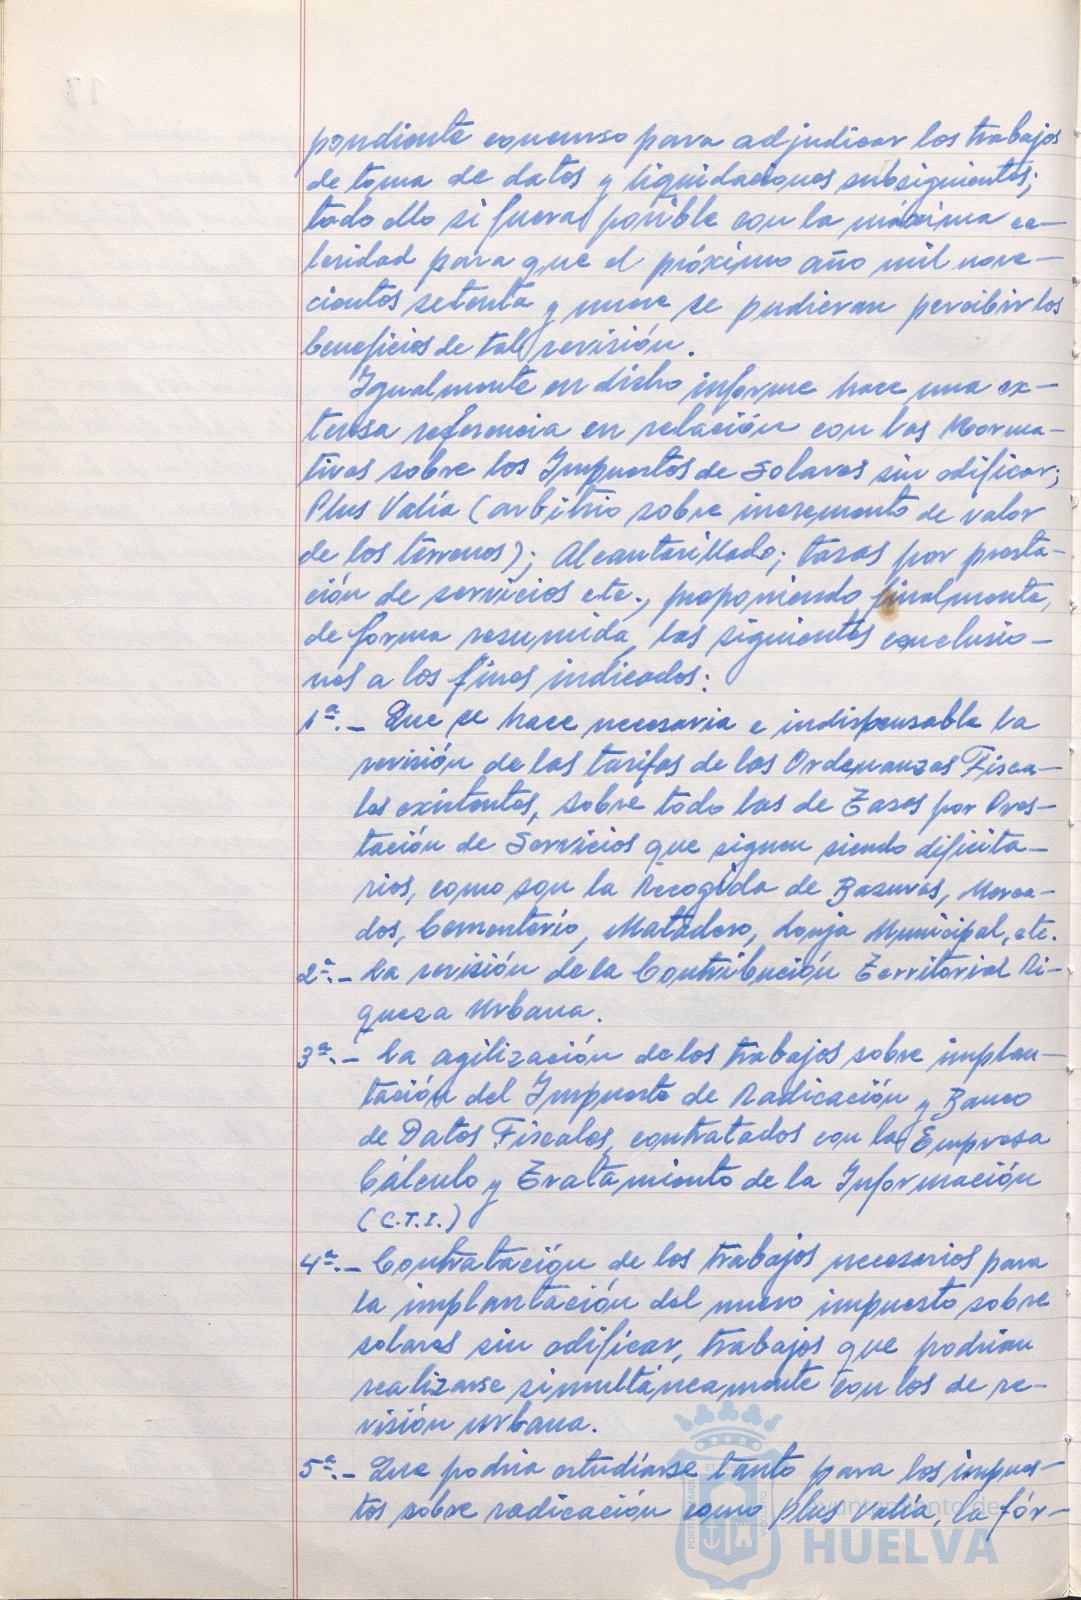 pondiente concurso para adjudicar los trabajos
de toma de datos y liquidaciones subsiguientes;
todo ello si fuera posible con la máxima ce-
leridad para que el próximo año mil nove-
cientos setenta y nueve se pudieran percibir los
beneficios de tal revisión.
Igualmente en dicho informe hace una ex-
tensa referencia en relación con las Norma-
tivas sobre los Impuestos de Solares sin edificar;
Plus Valía (arbitrio sobre incremento de valor
de los terrenos); Alcantarillado; tasas por presta-
ción de servicios etc., proponiendo finalmente,
de forma resumida, las siguientes conclusio-
nes a los fines indicados:
1ª.- Que se hace necesaria e indispensable la
revisión de las tarifas de las Ordenanzas Fisca-
les existentes, sobre todo las de Tasas por Pres-
tación de Servicios que siguen siendo deficita-
rios, como son la Recogida de Basuras, Merca-
dos, Cementerio, Matadero, Lonja Municipal, etc.
2ª.- La revisión de la Contribución Territorial Ri-
queza Urbana.
3ª.- La agilización de los trabajos sobre implan-
tación del Impuesto de Radicación y Banco
de Datos Fiscales, contratados con la Empresa
Cálculo y Tratamiento de la Información
(C.T.I.)
4ª.- Contratación de los trabajos necesarios para
la implantación del nuevo impuesto sobre
solares sin edificar, trabajos que podrian
realizarse simultáneamente con los de re-
visión urbana.
5ª.- Que podria estudiarse tanto para los impues-
tos sobre radicación como plus valía, la fór-
Ayuntamiento de
HUELVA